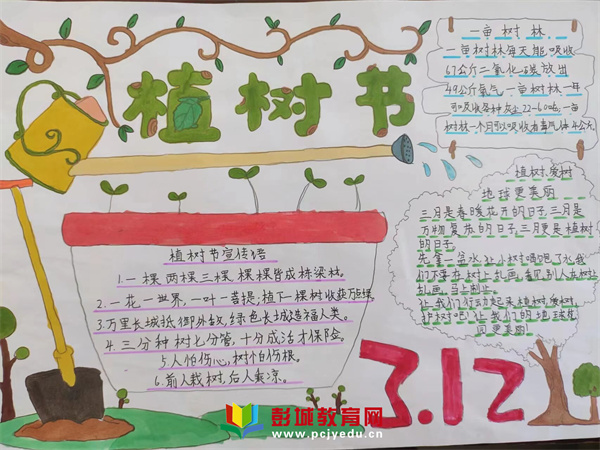 植树节
一亩树林
一亩树林每天能吸收
67公斤二氧化碳放出
49公斤氧气一亩树林一年
可吸收各种灰尘22-60吨,一亩
树林一个月可以吸收有毒气体4公斤
植树,爱树
地球更美丽
三月是春暖花开的日子,三月是
万物复苏的日子,三月更是植树
的日子。
先拿一盆水,让小树喝饱了水,我
们不要在树上乱画,看见别人在树上
乱画,马上制止。
让我们行动起来,植树,爱树,
护树吧!让我们的地球
更美丽!
植树节宣传语
1.一棵两棵三棵,棵棵皆成栋梁材。
2.一花一世界,一叶一菩提,植下一棵树收获万棵。
3.万里长城抵御外敌,绿色长城造福人类。
4.三分种树七分管,十分成活才保险。
5.人怕伤心,树怕伤根。
6.前人栽树,后人乘凉。
3.12
彭城教育网
www.pcjyedu.cn